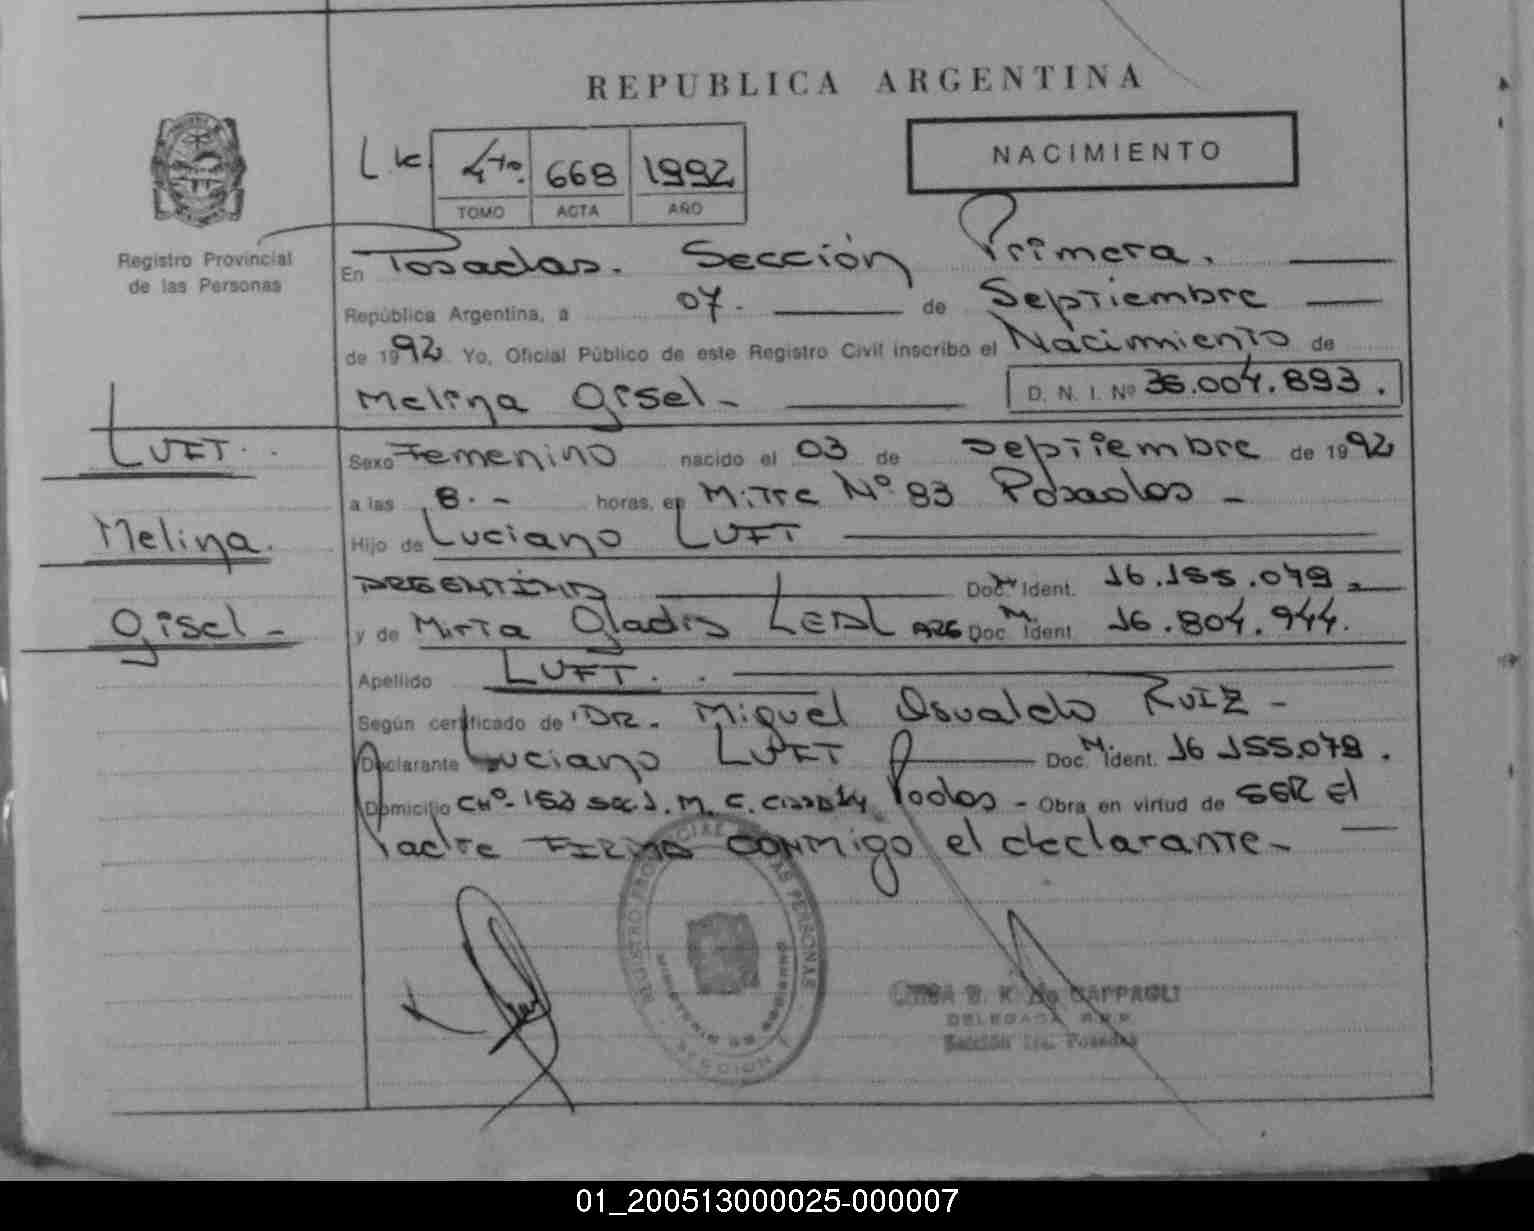 REPUBLICA ARGENTINA
NACIMIENTO
4to. 668 1992
TOMO ACTA AÑO
Registro Provincial
de las Personas
En Posadas. Sección Primera.
República Argentina, a 07. de Septiembre
de 1992 Yo, Oficial Público de este Registro Civil inscribo el Nacimiento de
Melina Gisel - D. N. I. Nº 36.004.893.
LUFT.
Melina.
Gisel -
Sexo Femenino nacido el 03 de Septiembre de 1992
a las 8. - horas, en Mitre Nº 83 Posadas -
Hijo de Luciano LUFT
ARGENTINO Doc. Ident. 16.155.079
y de Mirta Gladis LEAL ARG Doc. M. Ident 16.804.944.
Apellido LUFT.
Según certificado de DR. Miguel Osvaldo RUIZ -
Declarante Luciano LUFT Doc. M. Ident. 16 155.079.
Domicilio CHº 153 Sec. 1. M. C. Podas - Obra en virtud de SER El
Padre FIRMA CONMIGO el declarante -
REGISTRO PROVINCIAL DE LAS PERSONAS
MINISTERIO DE GOBIERNO
SECCION 1
B. K. de CAPPAGLI
DELEGADA R.P.P.
Sección 1ra. Posadas
01_200513000025-000007